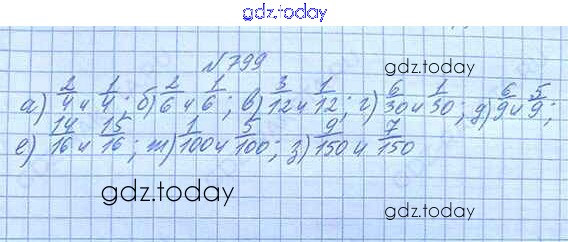 gdz.today
№799
gdz.today
а) 2/4 и 1/4; б) 2/6 и 1/6; в) 3/12 и 1/12; г) 6/30 и 1/30; д) 6/9 и 5/9;
е) 14/16 и 15/16; ж) 1/100 и 5/100; з) 9/150 и 7/150
gdz.today
gdz.today